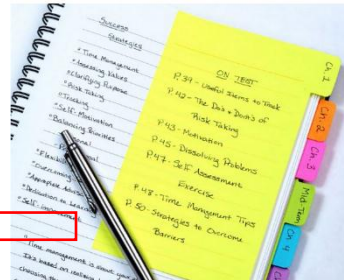 Success
Strategies
* Time Management
* Assessing Values
* Clarifying Purpose
* Risk Taking
* Trusting
* Self-Motivation
* Balancing Priorities
* Overcoming
* Appropriate
* Dedication to Learn
* Self-
Time management is about your
ON TEST
P. 39 - Useful Items to Pack
P. 42 - The Do's & Don'ts of
Risk Taking
P. 43 - Motivation
P. 45 - Dissolving Problems
P. 47 - Self Assessment
Exercise
P. 48 - Time Management Tips
P. 50 - Strategies to Overcome
Barriers
Ch. 1
Ch. 2
Ch. 3
Mid-Term
Ch. 4